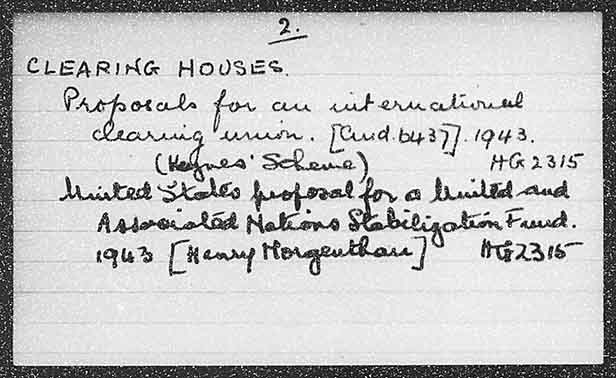 2.
CLEARING HOUSES.
Proposals for an international
clearing union. [Cmd. 6437]. 1943.
(Keynes' Scheme) HG 2315
United States proposal for a United and
Associated Nations Stabilization Fund.
1943 [Henry Morgenthau] HG2315